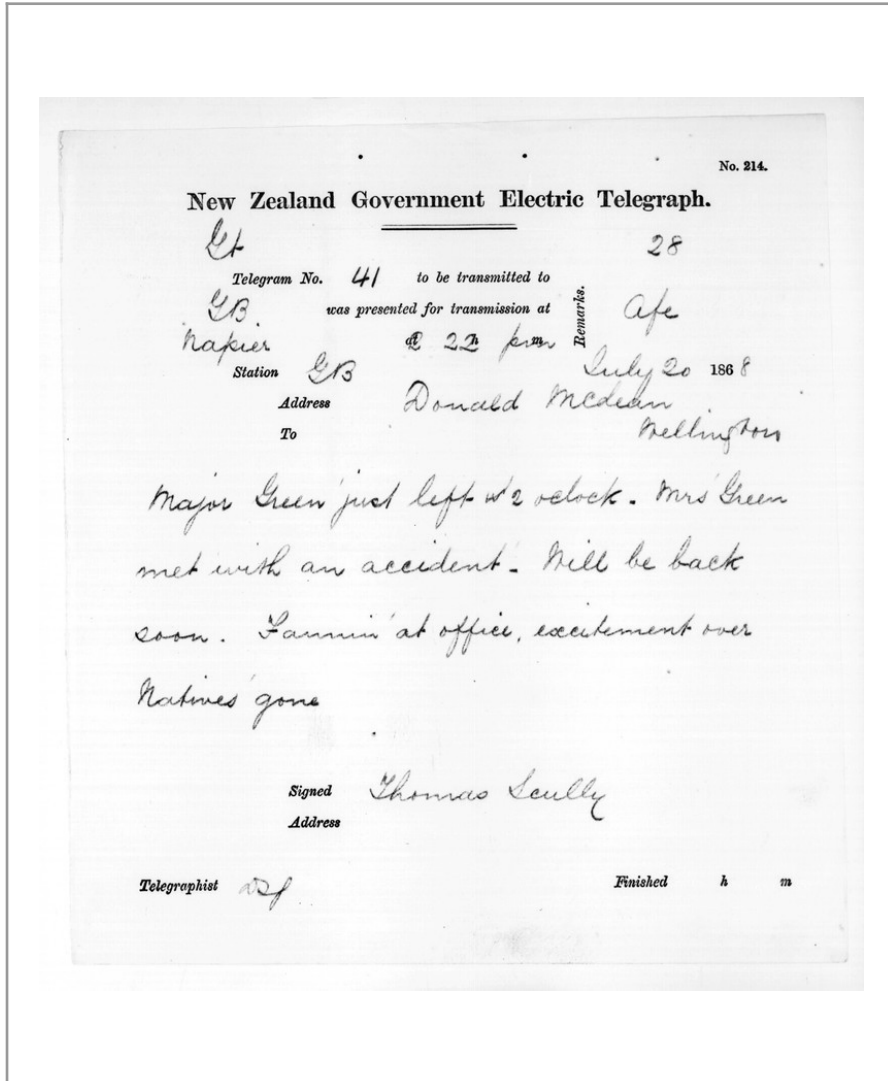 No. 214.
New Zealand Government Electric Telegraph.
Gt 28
Telegram No. 41 to be transmitted to
GB was presented for transmission at Remarks. Afe
Napier 2 h 22 pm
Station GB July 20 1868
Address Donald McLean
To Wellington
Major Green just left 2 oclock. Mrs Green
met with an accident. Will be back
soon. Fannin at office, excitement over
Natives gone
Signed Thomas Scully
Address
Telegraphist Finished h m